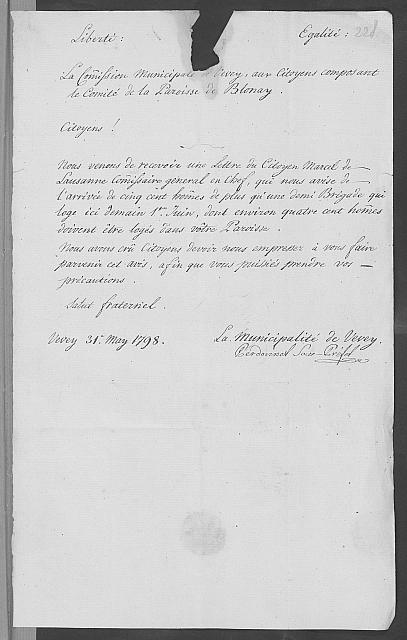 Liberté : Egalité : 221
La Comission Municipale de Vevey, aux Citoyens composant
le Comité de la Paroisse de Blonay.
Citoyens !
Nous venons de recevoir une Lettre du Citoyen Marcel de
Lausanne Comissaire general en Chef, qui nous avise de
l'arrivée de cinq cent homes de plus qu'une demi Brigade qui
loge ici demain 1r. Juin, dont environ quatre cent homes
doivent être logés dans vôtre Paroisse.
Nous avons crû Citoyens devoir nous empresser à vous faire
parvenir cet avis, afin que vous puissiés prendre vos —
précautions.
Salut fraternel.
Vevey 31e. May 1798. La Municipalité de Vevey.
Perdonnet